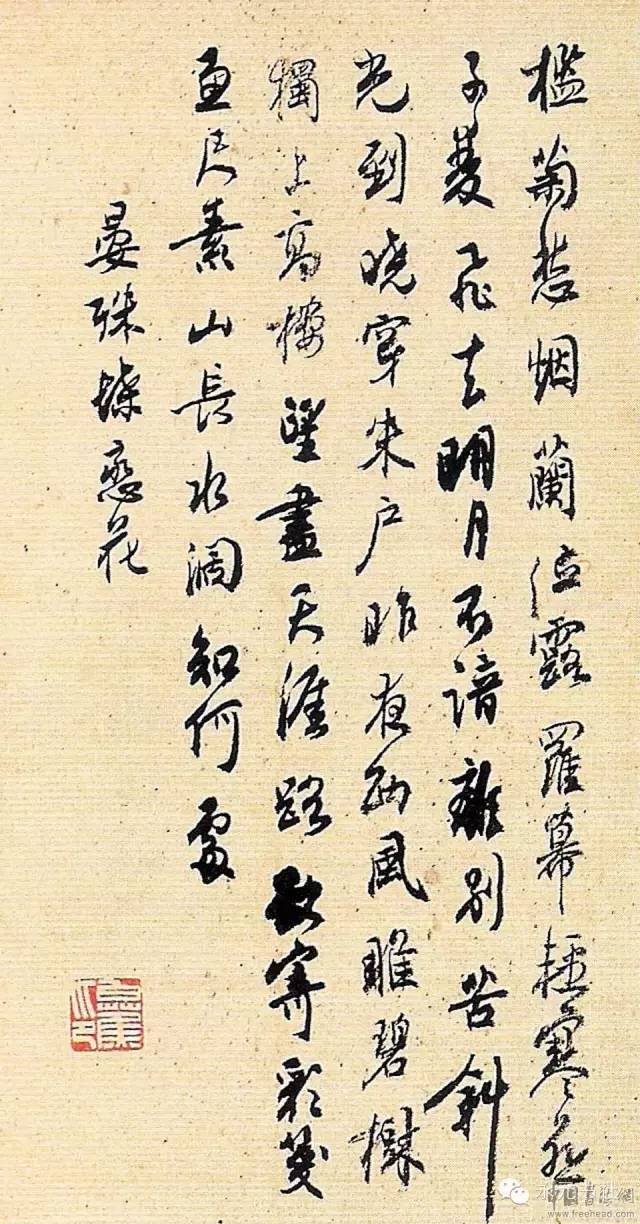 檻菊愁烟蘭泣露羅幕輕寒燕
子雙飛去明月不諳離别苦斜
光到曉穿朱户昨夜西風雕碧樹
獨上高樓望盡天涯路欲寄彩箋
尺素山長水闊知何處
晏殊蝶戀花
www.freehead.com